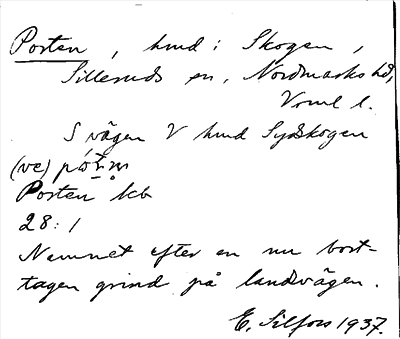 Posten, hmd i Skogen,
Silleruds sn, Nordmarks hd,
Vrml l.
S vägen V hmd Sydskogen
(ve)
Posten kb
28:1
Namnet efter en nu bort-
tagen grind på landvägen.
E. Silfors 1937.